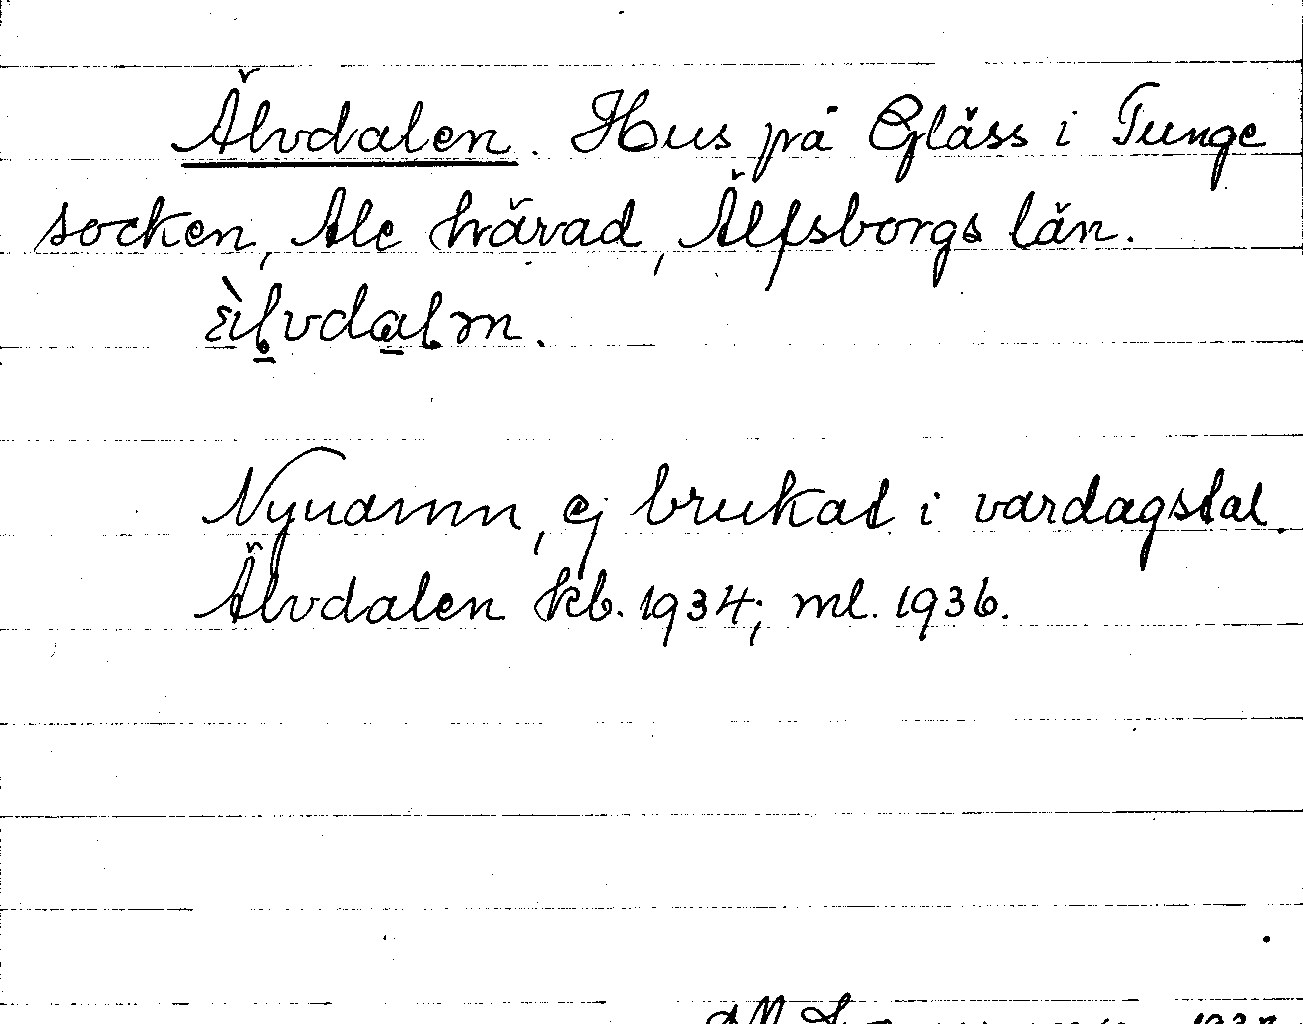 Älvdalen. Hus på Gläss i Tunge
socken, Ale härad, Älfsborgs län.
Nynamn, ej brukat i vardagstal.
Älvdalen kb. 1934; ml. 1936.